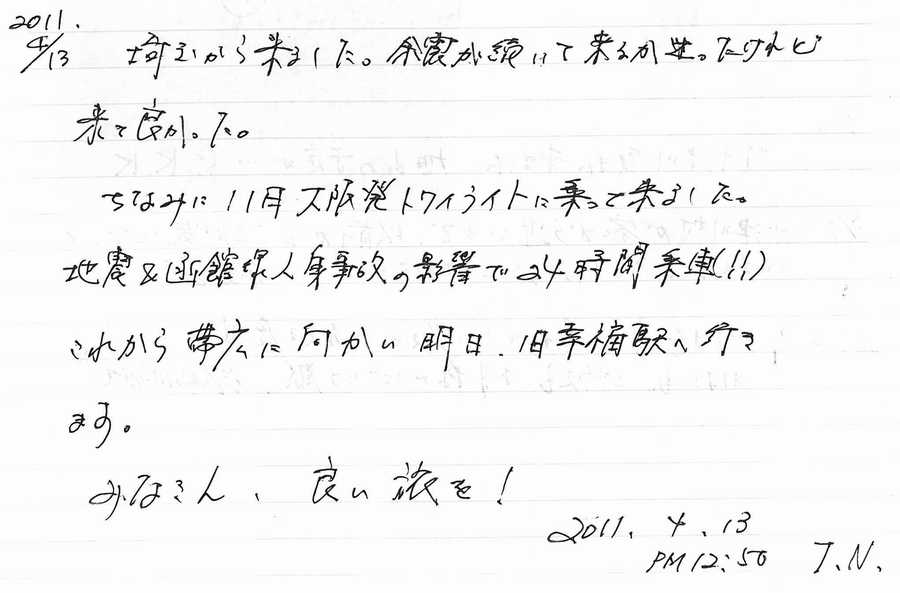 2011.
4/13 埼玉から来ました。余震が続いて来るか迷ったけれど
来て良かった。
ちなみに11日大阪発トワイライトに乗って来ました。
地震&函館線人身事故の影響で24時間乗車(!!)
これから帯広に向かい明日、旧幸福駅へ行き
ます。
みなさん、良い旅を!
2011. 4. 13
PM12:50 T.N.